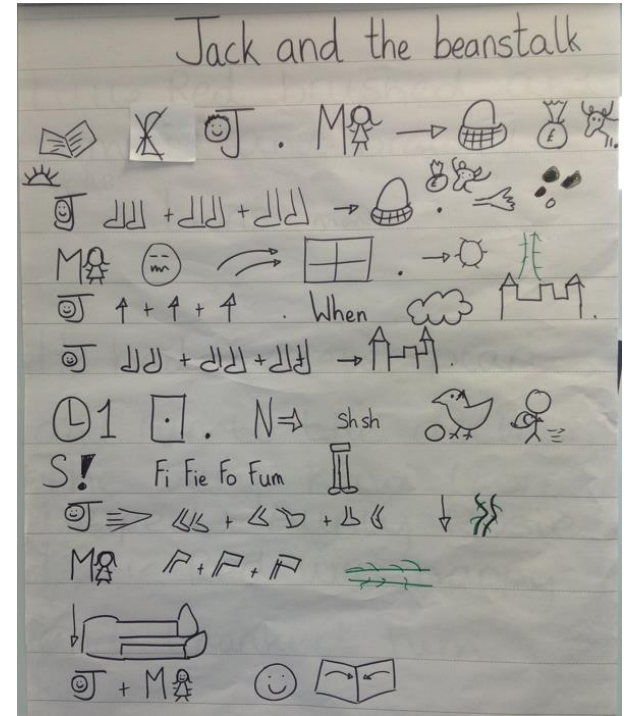 Jack and the beanstalk
J . M £
J + + .
M .
J + + . When .
J + + .
1 . N shsh
S! Fi Fie Fo Fum
J + +
M + +
J + M